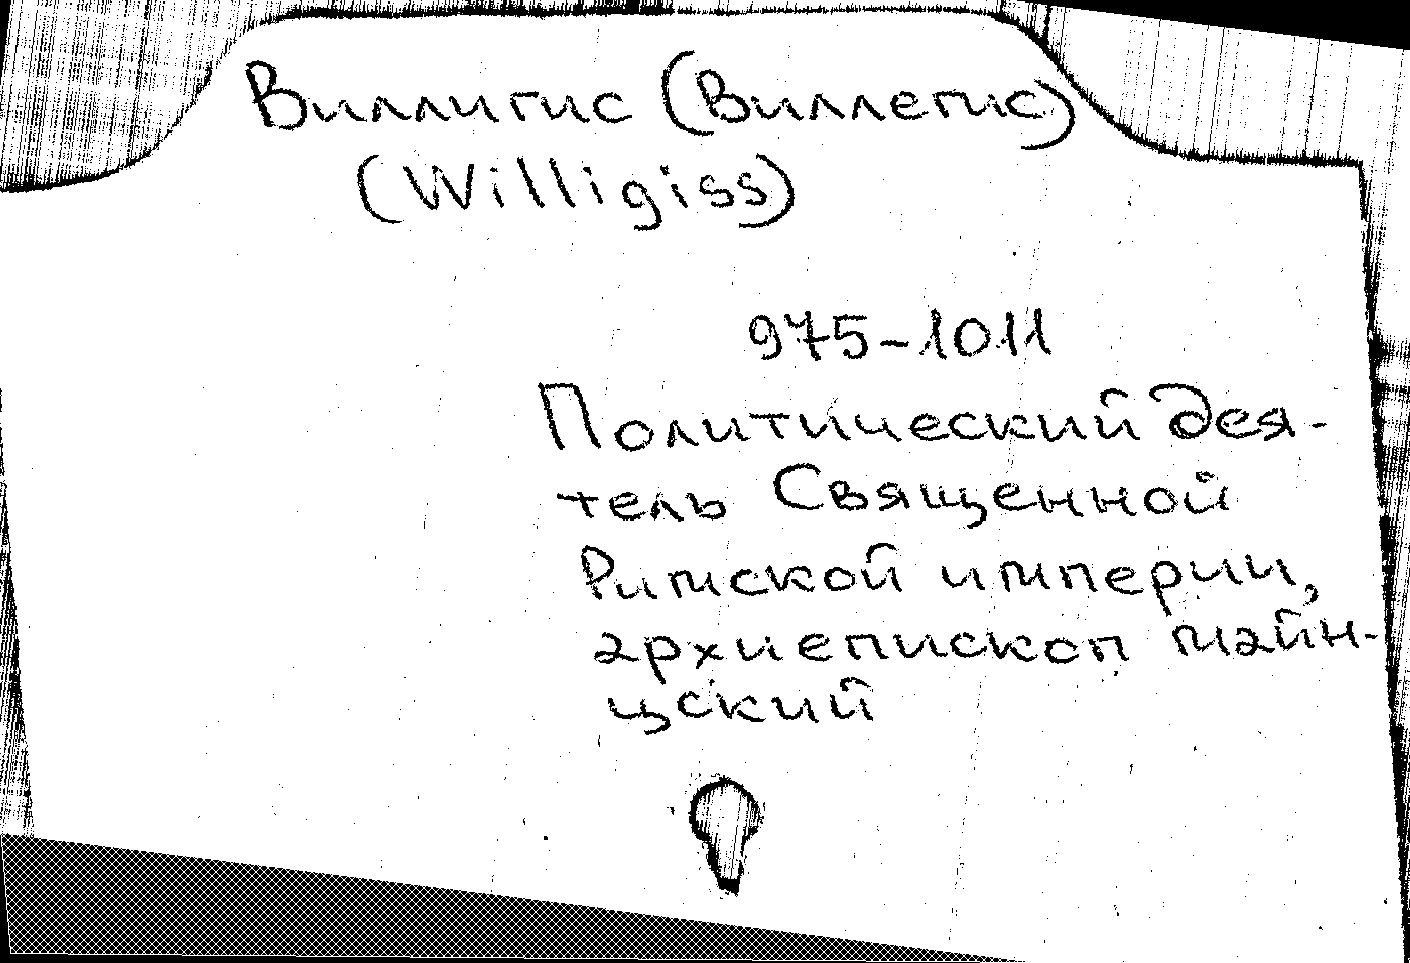 Виллигис (Виллегис)
(Willigiss)
975-1011
Политический дея-
тель Священной
Римской империи,
архиепископ майн-
цский